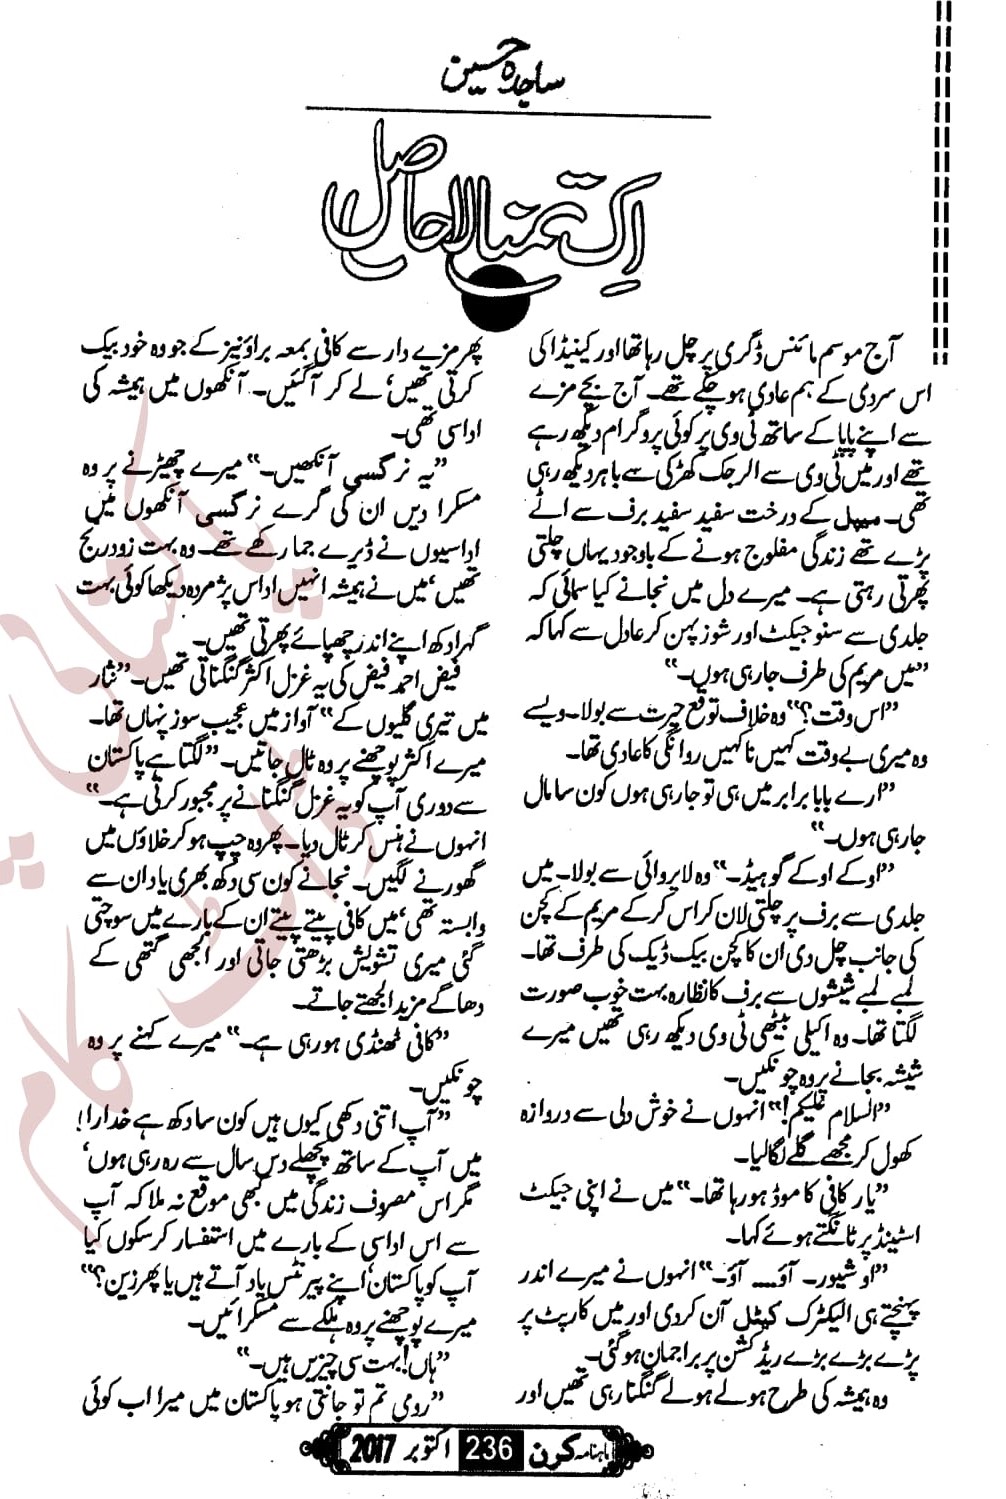 ساجدہ حسین
اک تمنا لا حاصل
آج موسم مائنس ڈگری پر چل رہا تھا اور کینیڈا کی
اس سردی کے ہم عادی ہو چکے تھے۔ آج بچے مزے
سے اپنے پاپا کے ساتھ ٹی وی پر کوئی پروگرام دیکھ رہے
تھے اور میں ٹی وی سے الرجک کھڑکی سے باہر دیکھ رہی
تھی۔ میپل کے درخت سفید سفید برف سے اٹے
پڑے تھے زندگی مفلوج ہونے کے باوجود یہاں چلتی
پھرتی رہتی ہے۔ میرے دل میں نجانے کیا سمائی کہ
جلدی سے سنو جیکٹ اور شوز پہن کر عادل سے کہا کہ
”میں مریم کی طرف جا رہی ہوں۔“
”اس وقت؟“ وہ خلاف توقع حیرت سے بولا۔ ویسے
وہ میری بے وقت کہیں نا کہیں روانگی کا عادی تھا۔
”ارے بابا برابر میں ہی تو جا رہی ہوں کون سا مال
جا رہی ہوں۔“
”اوکے اوکے گو ہیڈ۔“ وہ لاپروائی سے بولا۔ میں
جلدی سے برف پر چلتی لان کراس کر کے مریم کے کچن
کی جانب چل دی ان کا کچن بیک ڈیک کی طرف تھا۔
لمبے لمبے شیشوں سے برف کا نظارہ بہت خوب صورت
لگتا تھا۔ وہ اکیلی بیٹھی ٹی وی دیکھ رہی تھیں میرے
شیشہ بجانے پر وہ چونکیں۔
”السلام علیکم!“ انہوں نے خوش دلی سے دروازہ
کھول کر مجھے گلے لگا لیا۔
”یار کافی کا موڈ ہو رہا تھا۔“ میں نے اپنی جیکٹ
اسٹینڈ پر ٹانگتے ہوئے کہا۔
”اوشیور۔ آؤ۔۔۔ آؤ۔“ انہوں نے میرے اندر
پہنچتے ہی الیکٹرک کیٹل آن کر دی اور میں کارپٹ پر
پڑے بڑے بڑے ریڈ کشن پر براجمان ہو گئی۔
وہ ہمیشہ کی طرح ہولے ہولے گنگنا رہی تھیں اور
پھر مزے دار سے کافی بمعہ براؤنیز کے جو وہ خود بیک
کرتی تھیں، لے کر آ گئیں۔ آنکھوں میں ہمیشہ کی
اداسی تھی۔
”یہ نرگسی آنکھیں۔“ میرے چھیڑنے پر وہ
مسکرا دیں ان کی گرے نرگسی آنکھوں میں
اداسیوں نے ڈیرے جما رکھے تھے۔ وہ بہت زود رنج
تھیں، میں نے ہمیشہ انہیں اداس پژمردہ دیکھا کوئی بہت
گہرا دکھ اپنے اندر چھپائے پھرتی تھیں۔
فیض احمد فیض کی یہ غزل اکثر گنگناتی تھیں۔ ”نثار
میں تیری گلیوں کے“ آواز میں عجیب سوز پنہاں تھا۔
میرے اکثر پوچھنے پر وہ ٹال جاتیں۔ ”لگتا ہے پاکستان
سے دوری آپ کو یہ غزل گنگنانے پر مجبور کرتی ہے۔“
انہوں نے ہنس کر ٹال دیا۔ پھر وہ چپ ہو کر خلاؤں میں
گھورنے لگیں۔ نجانے کون سی دکھ بھری یاد ان سے
وابستہ تھی، میں کافی پیتے پیتے ان کے بارے میں سوچتی
گئی میری تشویش بڑھتی جاتی اور الجھی گتھی کے
دھاگے مزید الجھتے جاتے۔
”کافی ٹھنڈی ہو رہی ہے۔“ میرے کہنے پر وہ
چونکیں۔
”آپ اتنی دکھی کیوں ہیں کون سا دکھ ہے خدارا!
میں آپ کے ساتھ پچھلے دس سال سے رہ رہی ہوں،
مگر اس مصروف زندگی میں کبھی موقع نہ ملا کہ آپ
سے اس اداسی کے بارے میں استفسار کر سکوں کیا
آپ کو پاکستان، اپنے پیرنٹس یاد آتے ہیں یا پھر زین؟“
میرے پوچھنے پر وہ ہلکے سے مسکرائیں۔
”ہاں! بہت سی چیزیں ہیں۔“
”رومی تم تو جانتی ہو پاکستان میں میرا اب کوئی
ماہنامہ کرن 236 اکتوبر 2017
پاکستانی پوائنٹ ڈاٹ کام